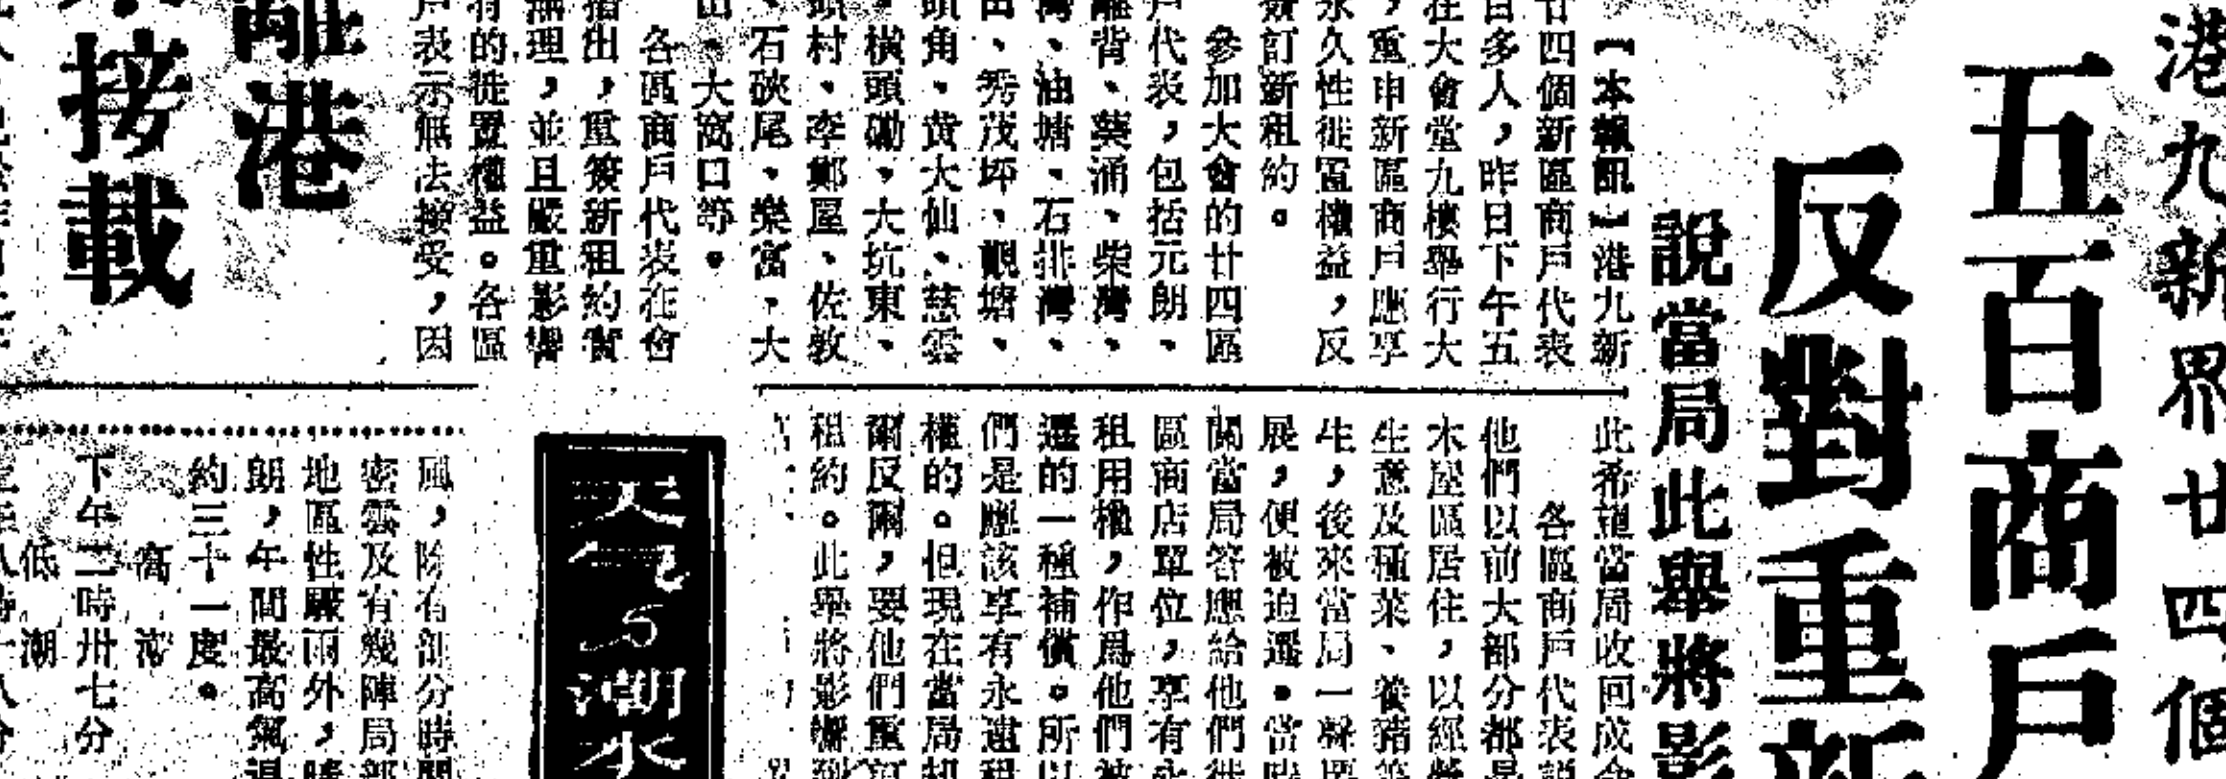 港九新界廿四個
五百商戶
反對重新
說當局此舉將影
【本報訊】港九新
廿四個新區商戶代表
百多人，昨日下午五
在大會堂九樓舉行大
，重申新區商戶應享
永久性徙置權益，反
簽訂新租約。
參加大會的廿四區
戶代表，包括元朗、
離背、葵涌、柴灣、
灣、油塘、石排灣、
田、秀茂坪、觀塘、
頭角、黃大仙、慈雲
、橫頭磡、大坑東、
頭村、李鄭屋、佐敦
、石硤尾、樂富、大
山、大窩口等。
各區商戶代表在會
指出，重簽新租約實
無理，並且嚴重影響
有的徙置權益。各區
戶表示無法接受，因
此希望當局收回成命
各區商戶代表說
他們以前大部分都是
木屋區居住，以經營
生意及種菜、養豬等
生，後來當局一聲要
展，便被迫遷。當時
關當局答應給他們徙
區商店單位，享有永
租用權，作爲他們被
遷的一種補償。所以
們是應該享有永遠租
權的。但現在當局却
爾反爾，要他們重訂
租約。此舉將影響到
離港
接載
天氣與潮水
風，除有部分時間
密雲及有幾陣局部
地區性驟雨外，晴
朗，午間最高氣溫
約三十一度。
高潮
下午二時卅七分
低潮